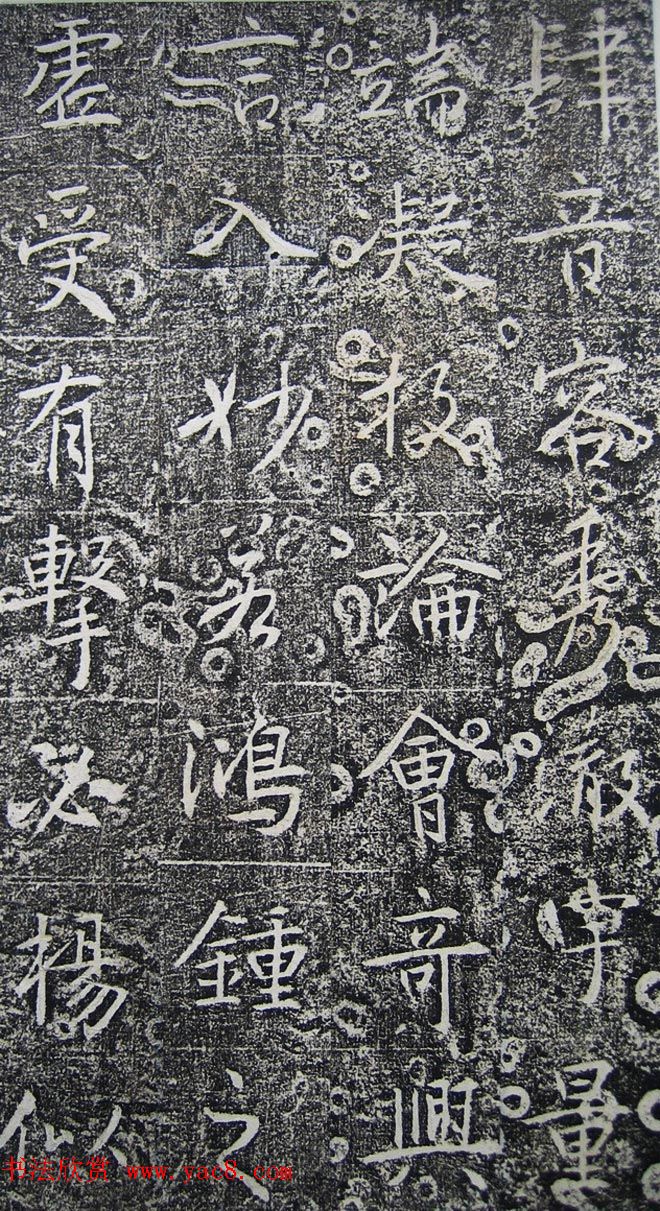 肆音容秀澈宇量
端凝极論會奇興
言入妙若鴻鍾之
虛受有擊必楊似
书法欣赏 www.yac8.com